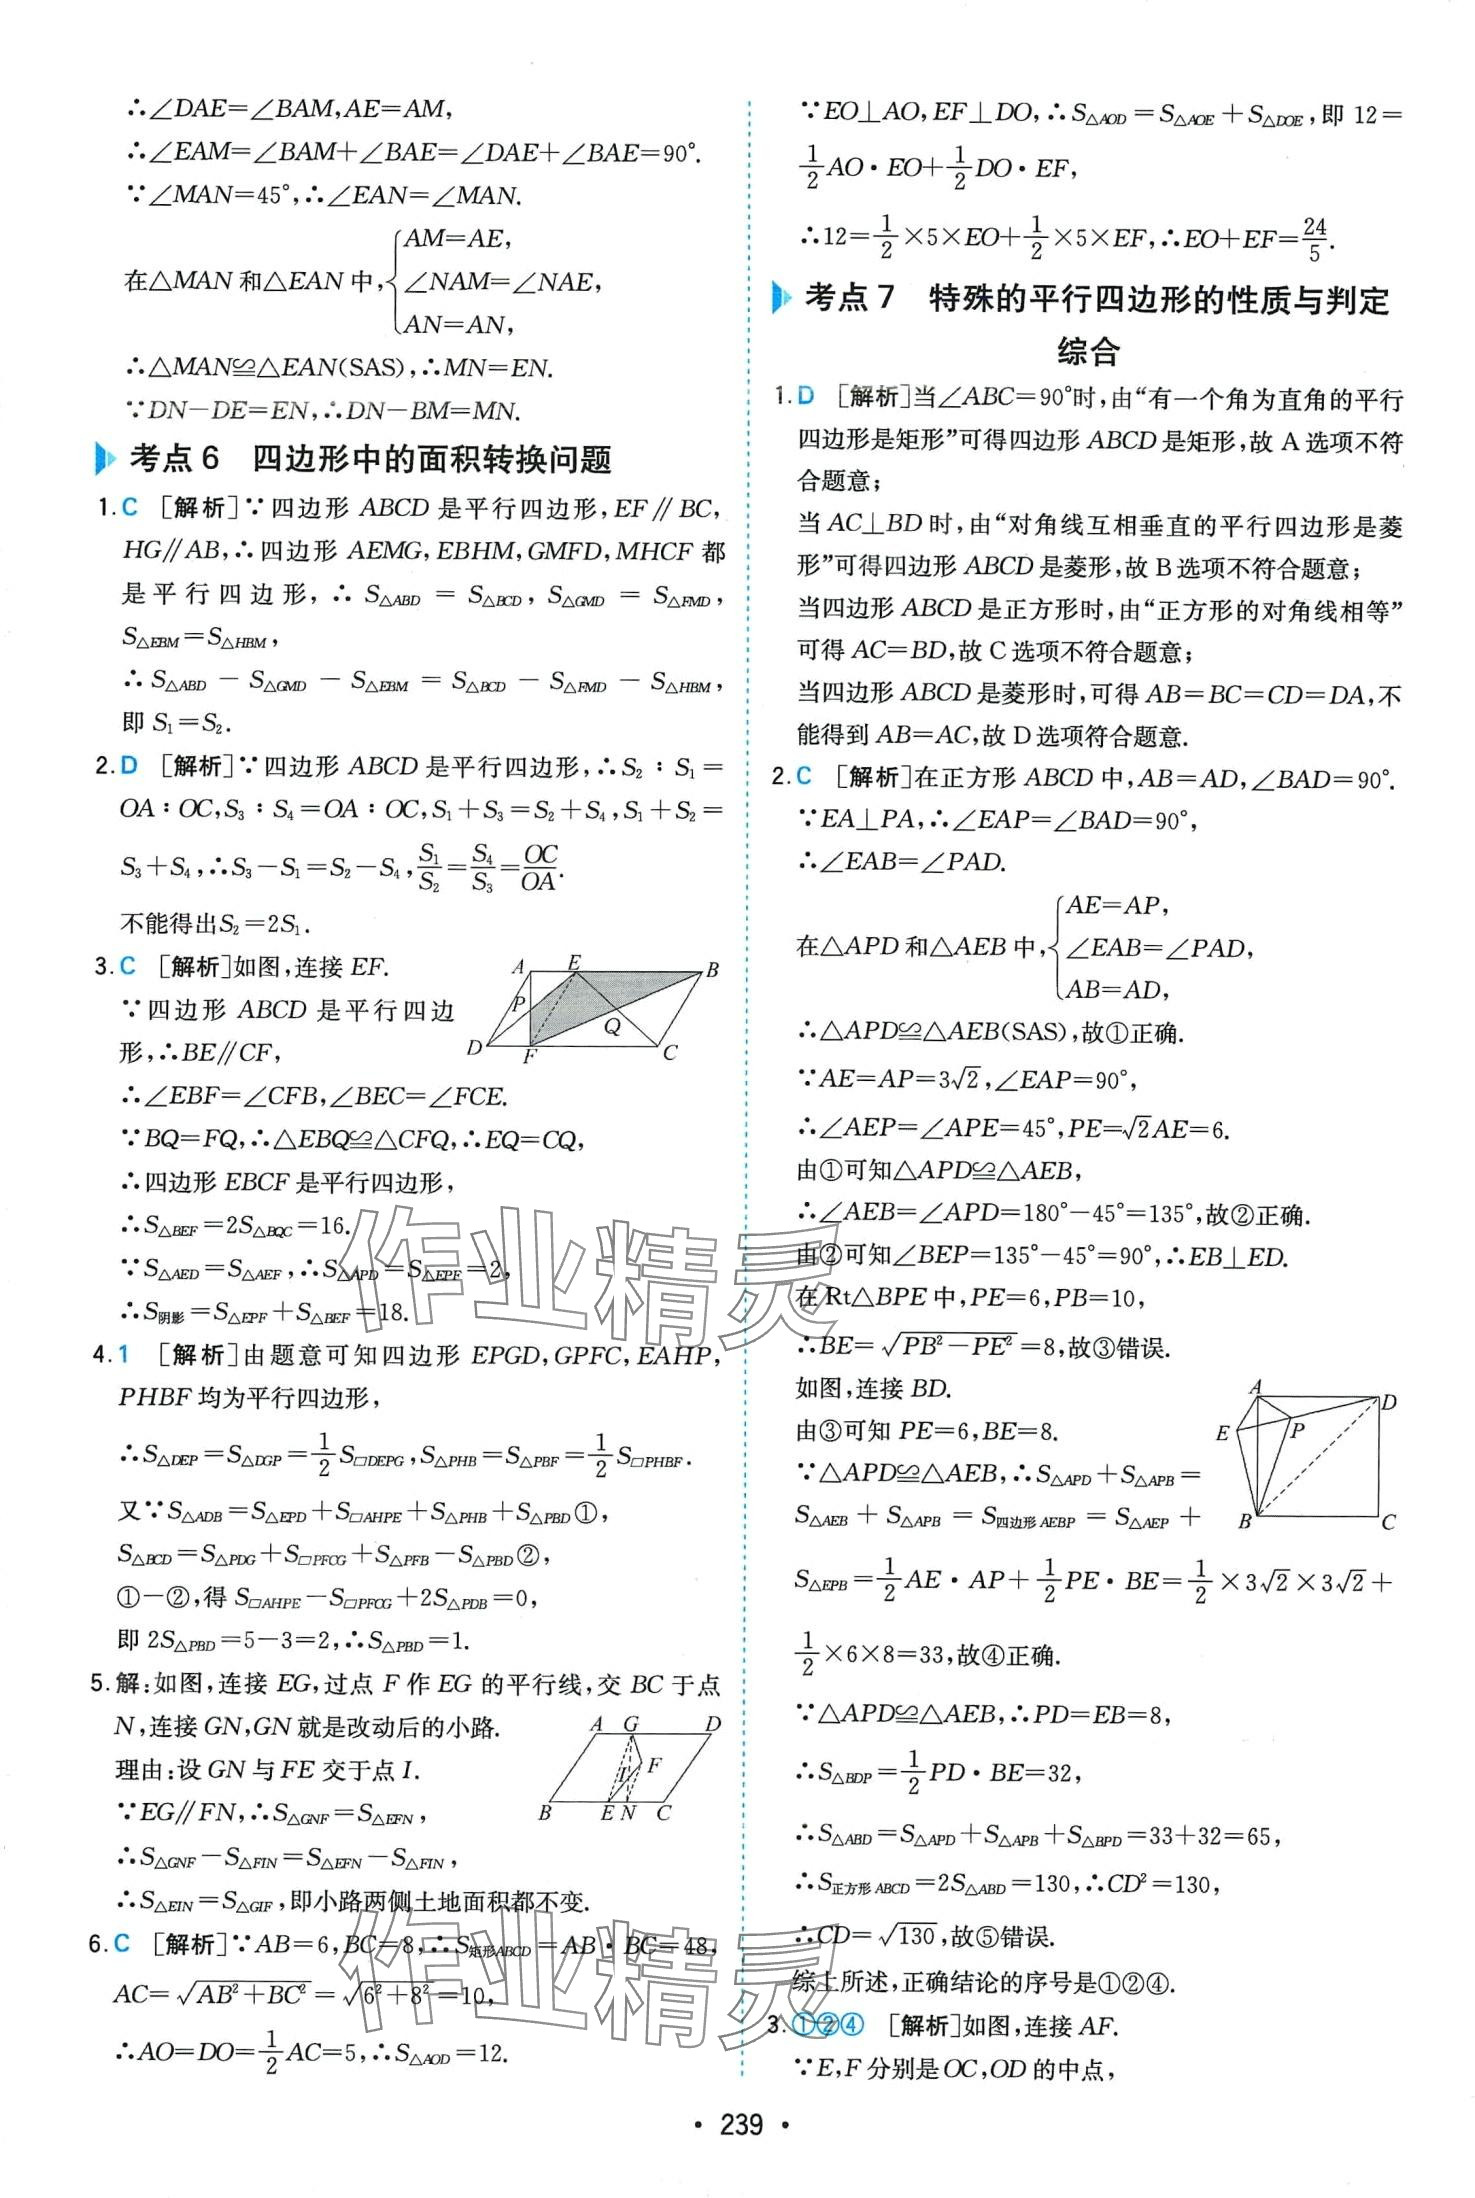 ∴∠DAE=∠BAM,AE=AM,
∴∠EAM=∠BAM+∠BAE=∠DAE+∠BAE=90°.
∵∠MAN=45°,∴∠EAN=∠MAN.
在△MAN和△EAN中,{AM=AE,
∠NAM=∠NAE,
AN=AN,
∴△MAN≌△EAN(SAS),∴MN=EN.
∵DN-DE=EN,∴DN-BM=MN.
考点6 四边形中的面积转换问题
1.C [解析]∵四边形ABCD是平行四边形,EF∥BC,
HG∥AB,∴四边形AEMG,EBHM,GMFD,MHCF都
是平行四边形,∴S△ABD=S△BCD,S△GMD=S△FMD,
S△EBM=S△HBM,
∴S△ABD-S△GMD-S△EBM=S△BCD-S△FMD-S△HBM,
即S₁=S₂.
2.D [解析]∵四边形ABCD是平行四边形,∴S₂:S₁=
OA:OC,S₃:S₄=OA:OC,S₁+S₃=S₂+S₄,S₁+S₂=
S₃+S₄,∴S₃-S₁=S₂-S₄,S₁/S₂=S₄/S₃=OC/OA.
不能得出S₂=2S₁.
3.C [解析]如图,连接EF.
∵四边形ABCD是平行四边
形,∴BE∥CF,
A E B P Q D F C
∴∠EBF=∠CFB,∠BEC=∠FCE.
∵BQ=FQ,∴△EBQ≌△CFQ,∴EQ=CQ,
∴四边形EBCF是平行四边形,
∴S△BEF=2S△BQC=16.
∵S△AED=S△AEF,∴S△APD=S△EPF=2,
∴S阴影=S△EPF+S△BEF=18.
4.1 [解析]由题意可知四边形EPGD,GPFC,EAHP,
PHBF均为平行四边形,
∴S△DEP=S△DGP=1/2S□DEPG,S△PHB=S△PBF=1/2S□PHBF.
又∵S△ADB=S△EPD+S□AHPE+S△PHB+S△PBD①,
S△BCD=S△PDG+S□PFCG+S△PFB-S△PBD②,
①-②,得S□AHPE-S□PFCG+2S△PDB=0,
即2S△PBD=5-3=2,∴S△PBD=1.
5.解:如图,连接EG,过点F作EG的平行线,交BC于点
N,连接GN,GN就是改动后的小路.
理由:设GN与FE交于点I.
A G D I F B E N C
∵EG∥FN,∴S△GNF=S△EFN,
∴S△GNF-S△FIN=S△EFN-S△FIN,
∴S△EIN=S△GIF,即小路两侧土地面积都不变.
6.C [解析]∵AB=6,BC=8,∴S矩形ABCD=AB·BC=48,
AC=√(AB²+BC²)=√(6²+8²)=10,
∴AO=DO=1/2AC=5,∴S△AOD=12.
∵EO⊥AO,EF⊥DO,∴S△AOD=S△AOE+S△DOE,即12=
1/2AO·EO+1/2DO·EF,
∴12=1/2×5×EO+1/2×5×EF,∴EO+EF=24/5.
考点7 特殊的平行四边形的性质与判定
综合
1.D [解析]当∠ABC=90°时,由“有一个角为直角的平行
四边形是矩形”可得四边形ABCD是矩形,故A选项不符
合题意;
当AC⊥BD时,由“对角线互相垂直的平行四边形是菱
形”可得四边形ABCD是菱形,故B选项不符合题意;
当四边形ABCD是正方形时,由“正方形的对角线相等”
可得AC=BD,故C选项不符合题意;
当四边形ABCD是菱形时,可得AB=BC=CD=DA,不
能得到AB=AC,故D选项符合题意.
2.C [解析]在正方形ABCD中,AB=AD,∠BAD=90°.
∵EA⊥PA,∴∠EAP=∠BAD=90°,
∴∠EAB=∠PAD.
在△APD和△AEB中,{AE=AP,
∠EAB=∠PAD,
AB=AD,
∴△APD≌△AEB(SAS),故①正确.
∵AE=AP=3√2,∠EAP=90°,
∴∠AEP=∠APE=45°,PE=√2AE=6.
由①可知△APD≌△AEB,
∴∠AEB=∠APD=180°-45°=135°,故②正确.
由②可知∠BEP=135°-45°=90°,∴EB⊥ED.
在Rt△BPE中,PE=6,PB=10,
∴BE=√(PB²-PE²)=8,故③错误.
如图,连接BD.
由③可知PE=6,BE=8.
A D E P B C
∵△APD≌△AEB,∴S△APD+S△APB=
S△AEB+S△APB=S四边形AEBP=S△AEP+
S△EPB=1/2AE·AP+1/2PE·BE=1/2×3√2×3√2+
1/2×6×8=33,故④正确.
∵△APD≌△AEB,∴PD=EB=8,
∴S△BDP=1/2PD·BE=32,
∴S△ABD=S△APD+S△APB+S△BPD=33+32=65,
∴S正方形ABCD=2S△ABD=130,∴CD²=130,
∴CD=√130,故⑤错误.
综上所述,正确结论的序号是①②④.
3.①②④ [解析]如图,连接AF.
∵E,F分别是OC,OD的中点,
作业精灵
作业精灵
·239·